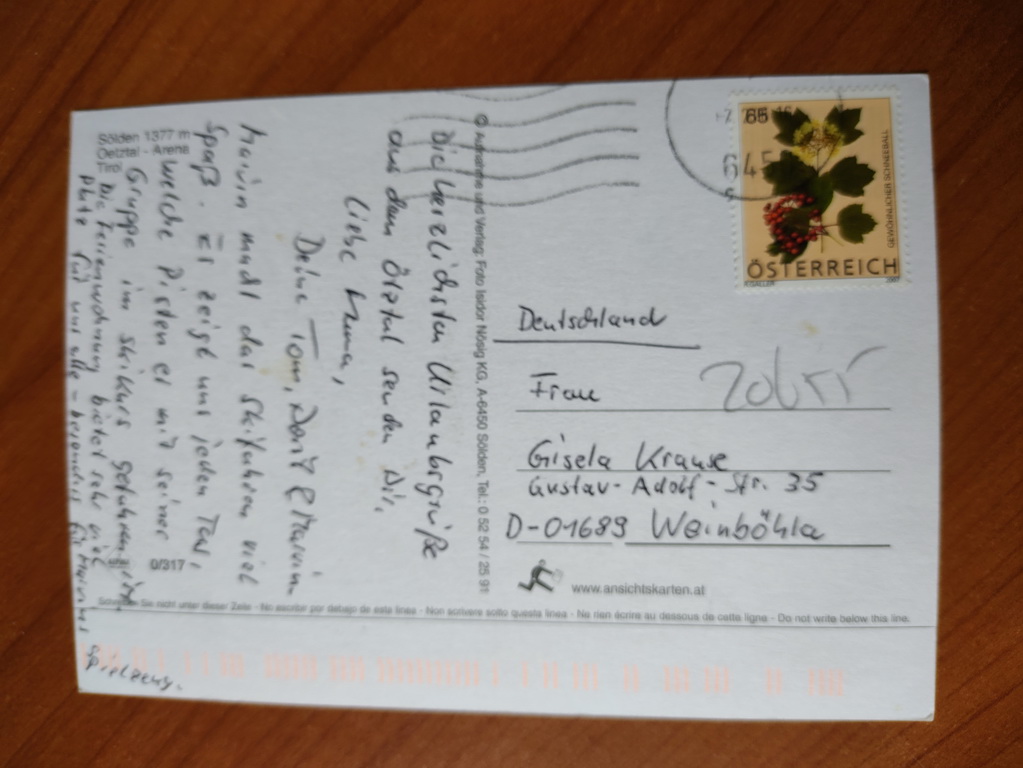 Sölden 1377 m
Oetztal - Arena
Tirol
Die herzlichsten Urlaubsgrüße
aus dem Ötztal senden Dir,
liebe
Deine Tom, Dorit & Marvin.
Marvin macht das Skifahren viel
Spaß. Er zeigt uns jeden Tag,
welche Pisten er mit seiner
Gruppe im Skikurs gefahren ist.
Die Ferienwohnung bietet sehr viel
Platz für uns alle – besonders für Marvins
Spielzeug.
0/317
© Aufnahme und Verlag: Foto Isidor Nösig KG, A-6450 Sölden, Tel.: 0 52 54 / 25 91
65
GEWÖHNLICHER SCHNEEBALL
ÖSTERREICH
Deutschland
Frau
Gisela Krause
Gustav-Adolf-Str. 35
D-01689 Weinböhla
www.ansichtskarten.at
Schreiben Sie nicht unter dieser Zeile - No escribir por debajo de esta linea - Non scrivere sotto questa linea - Ne rien écrire au dessous de cette ligne - Do not write below this line.